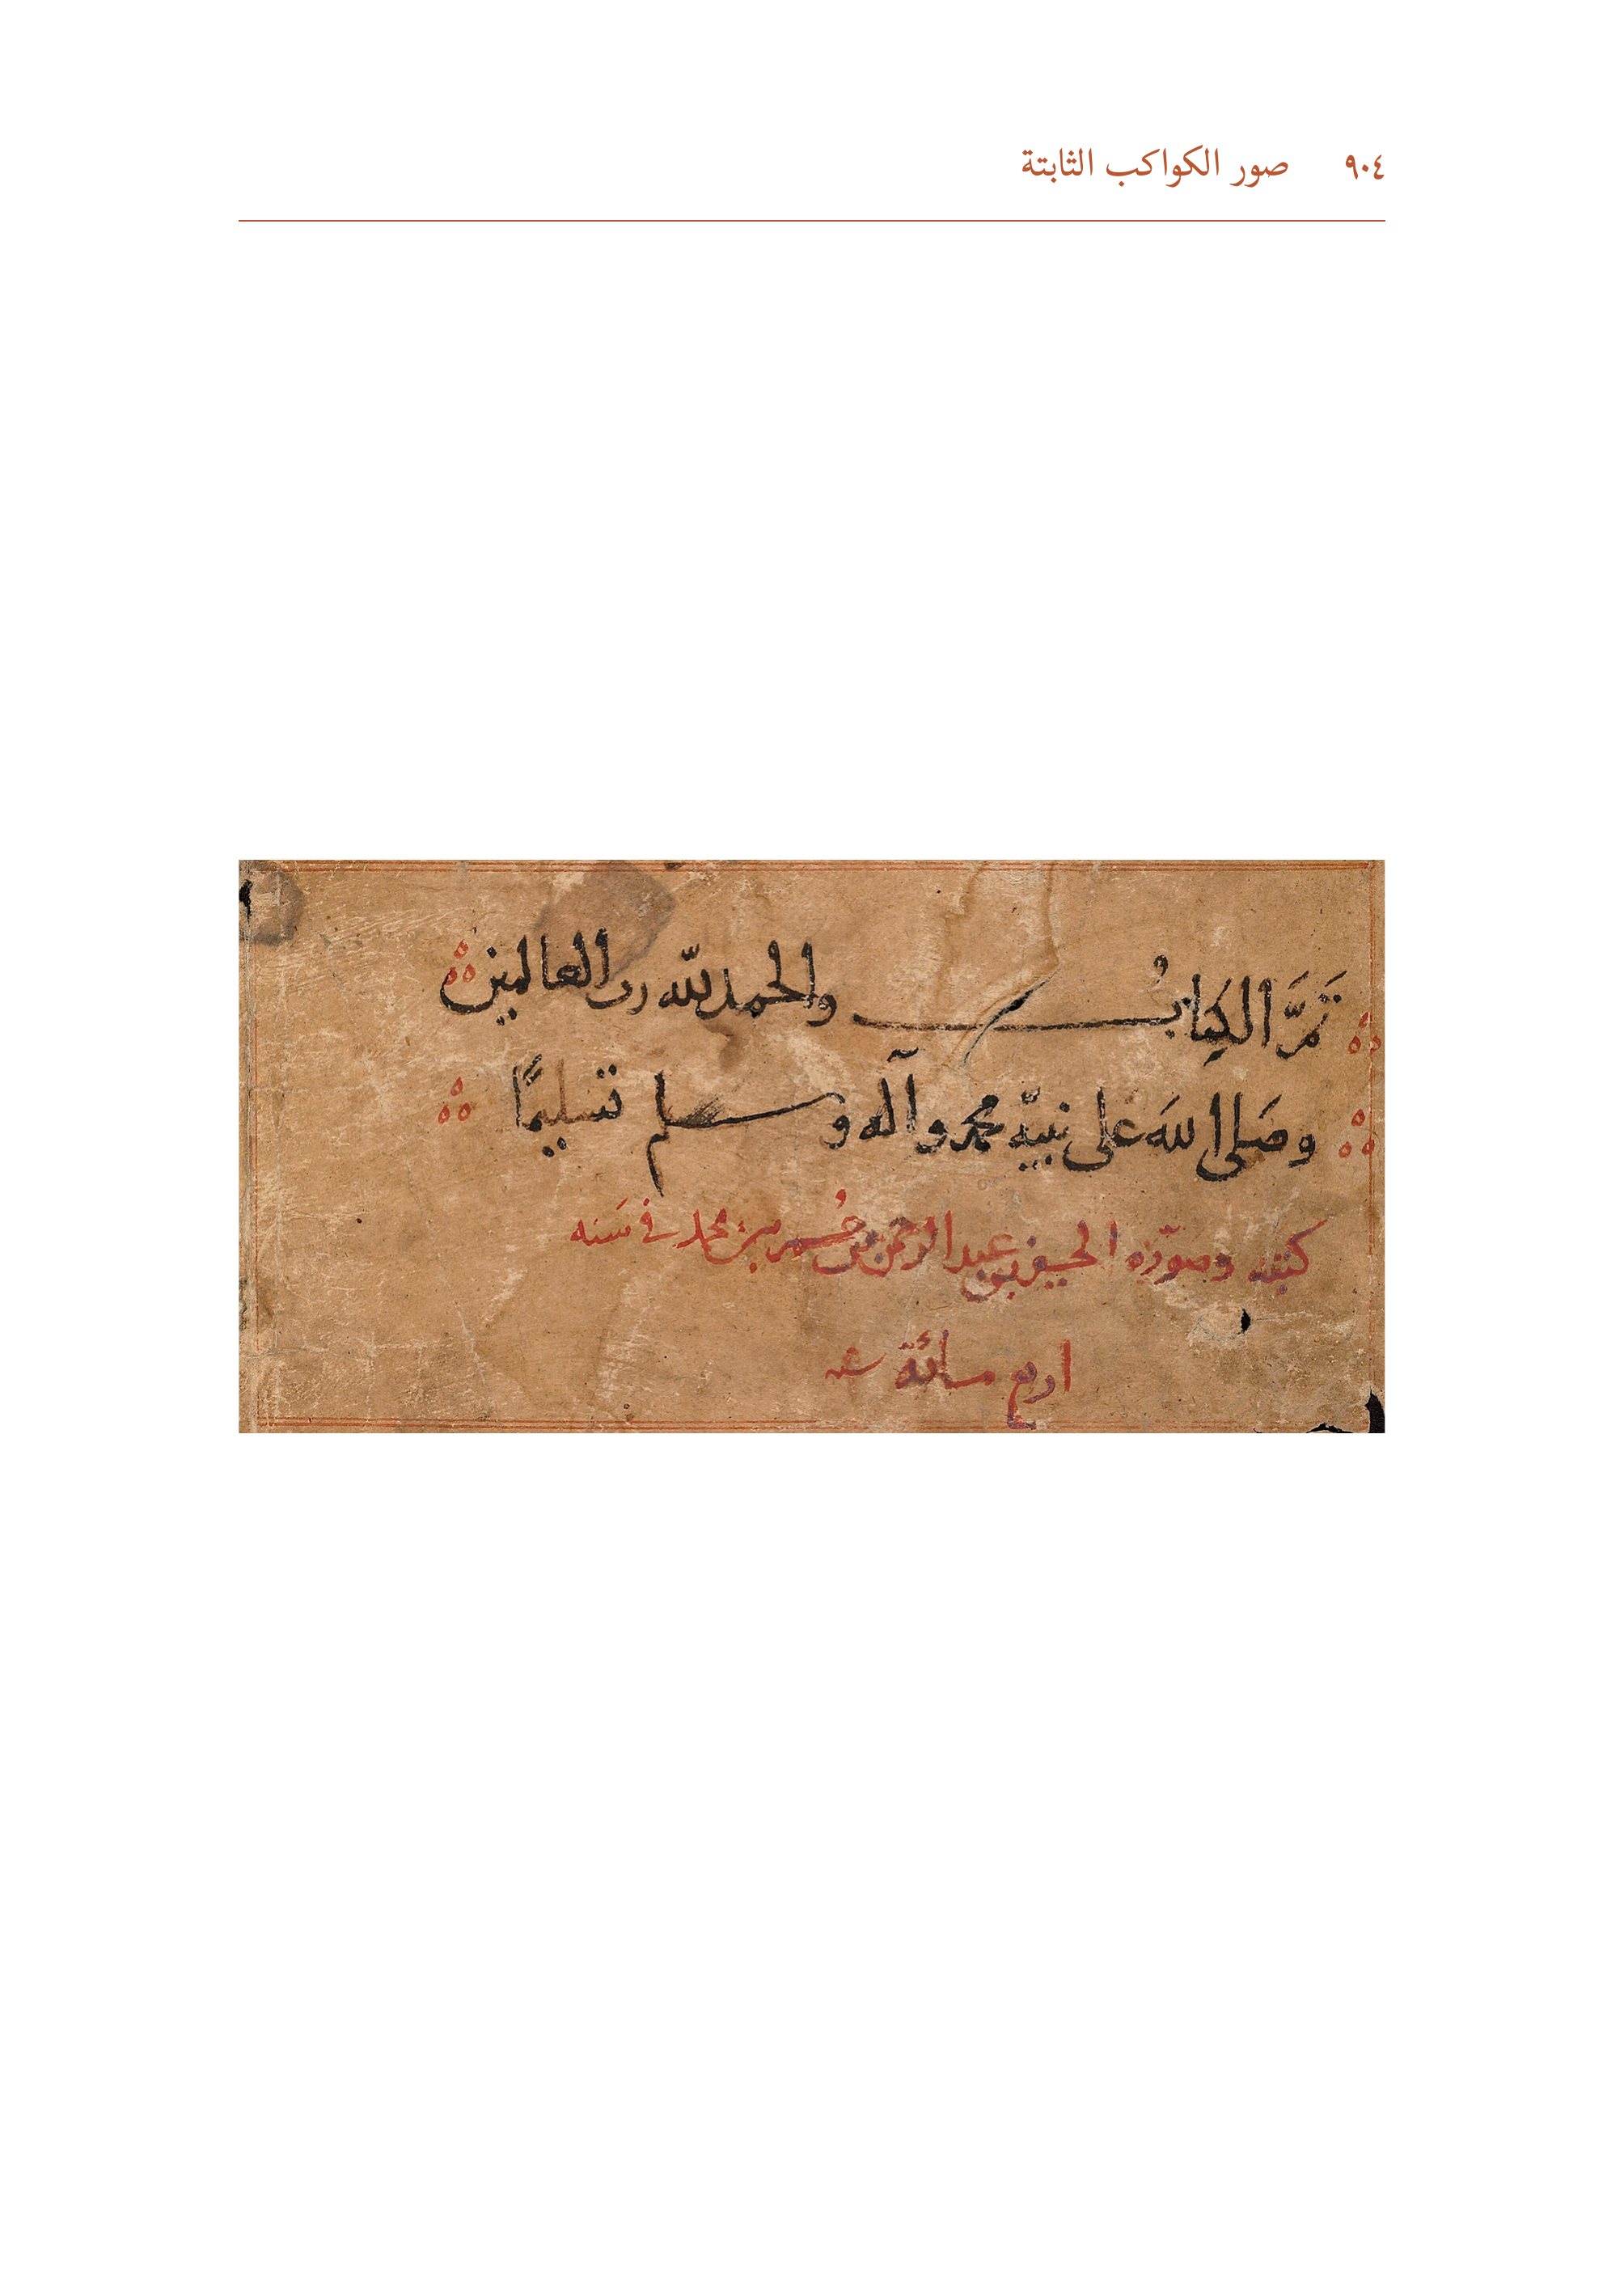 ٩٠٤ صور الكواكب الثابتة
تَمَّ الكِتابُ والحمد لله رب العالمين
وصَلى اللهَ على نبيّه محمد وآله وسلم تسليمًا
كتبه وصوّره الحسين بن عبد الرحمن بن عُمر بن محمد في سَنه
اربع مائة